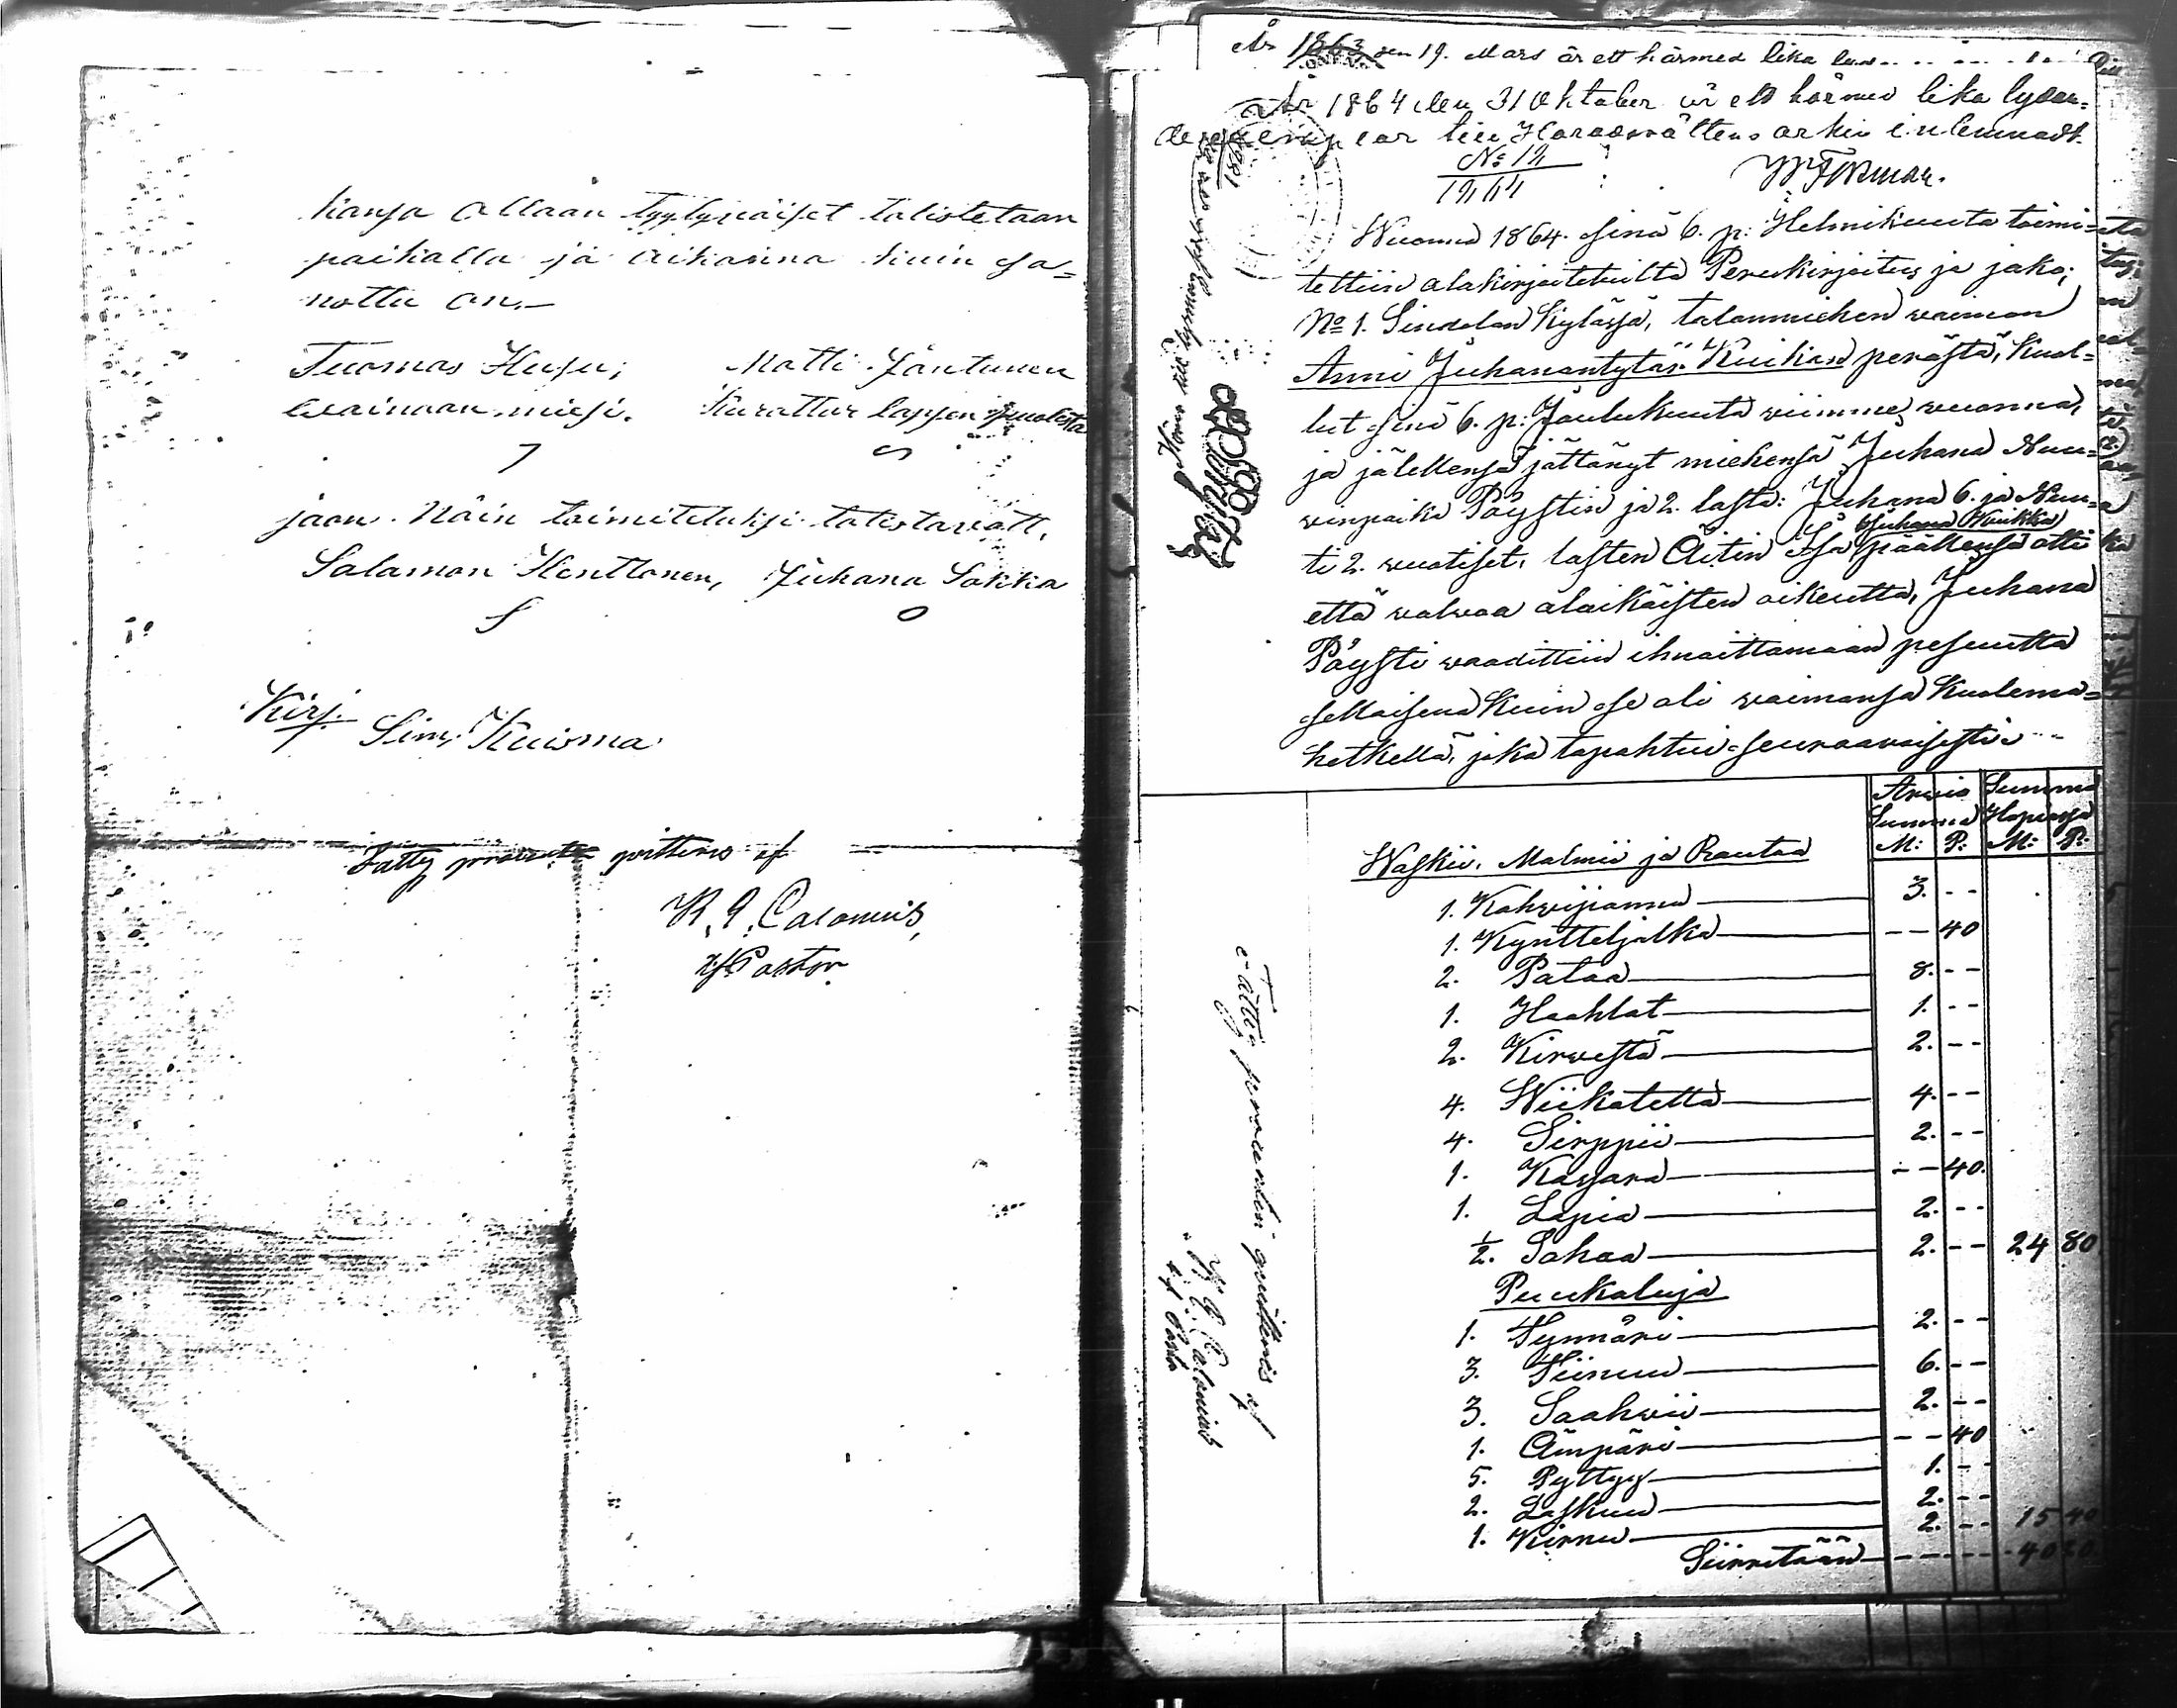 kanſa ollaan tyytyväiſet todistetaan
paikalla ja aikanna kuin ſa=
nottu on.
Tuomas Huſu, Matti Jäntunen
waimoan mieſi. Kurattor lapſen puolesta
jaon. Näin toimitetukſi todistavatt.
Salamon Henttonen, Juhana Sokka
Kirj.
Sim. Kuisma
Fattig procenten qvitteras af
K. J. Calonius,
v. Pastor
År 1863 den 19. Mars är ett härmed lika
År 1864 den 31 Oktober är ett härmed lika lydan=
de exemplar till Häradsrättens arkiv inlemnadt.
No 12
1864
Wuonna 1864. ſinä 6. p: Helmikuuta toimi=
tettiin alakirjoitetuilta Perukirjoitus ja jako;
No 1. Sindolan Kyläſſä, talonmiehen waimon
Anni Juhanantytär Kuikan perästä, Kuol=
lut ſinä 6. p: Joulukuuta wiimme wuonna,
ja jälkkenſä jättänyt miehenſä Juhana Nuu=
winpoika Pöyſtin ja 2. laſta: Juhana 6. ja Nuu=
Juhana Kuikka
ti 2. wuotiſet, laſten Äitin Iſä päällenſä otti
että walwoa alaikäiſten oikeutta, Juhana
Pöyſti waadittiin ilmoittamaan peſuutta
ſellaiſena Kuin ſe oli waimonſa Kuolema=
hetkellä, joka tapahtui ſeuraawaiſeſti:
Arwio Summa
Summa Hopeaſſa
M: P: M: P:
Waſkii, Malmii ja Rautaa
1. Kahwipannu 3. - -
1. Kyntteljalka - - 40
2. Pataa 8. - -
1. Haahlat 1. - -
2. Kirweſtä 2. - -
4. Wiikatetta 4. - -
4. Sirppii 2. - -
1. Kaſſara - - 40.
1. Lapia 2. - -
1/2. Sahaa 2. - - 24 80
Puukaluja
1. Tynnäri 2. - -
3. Tiinuu 6. - -
3. Saahwii 2. - -
1. Ämpäri - - 40
5. Pyttyy 1. - -
2. Laſkuu 2. - -
1. Kirnu 2. - - 15 40
Siirretään - - - - 40 20
Fattig procenten quitteras af
K. J. Calonius
v. Pastor